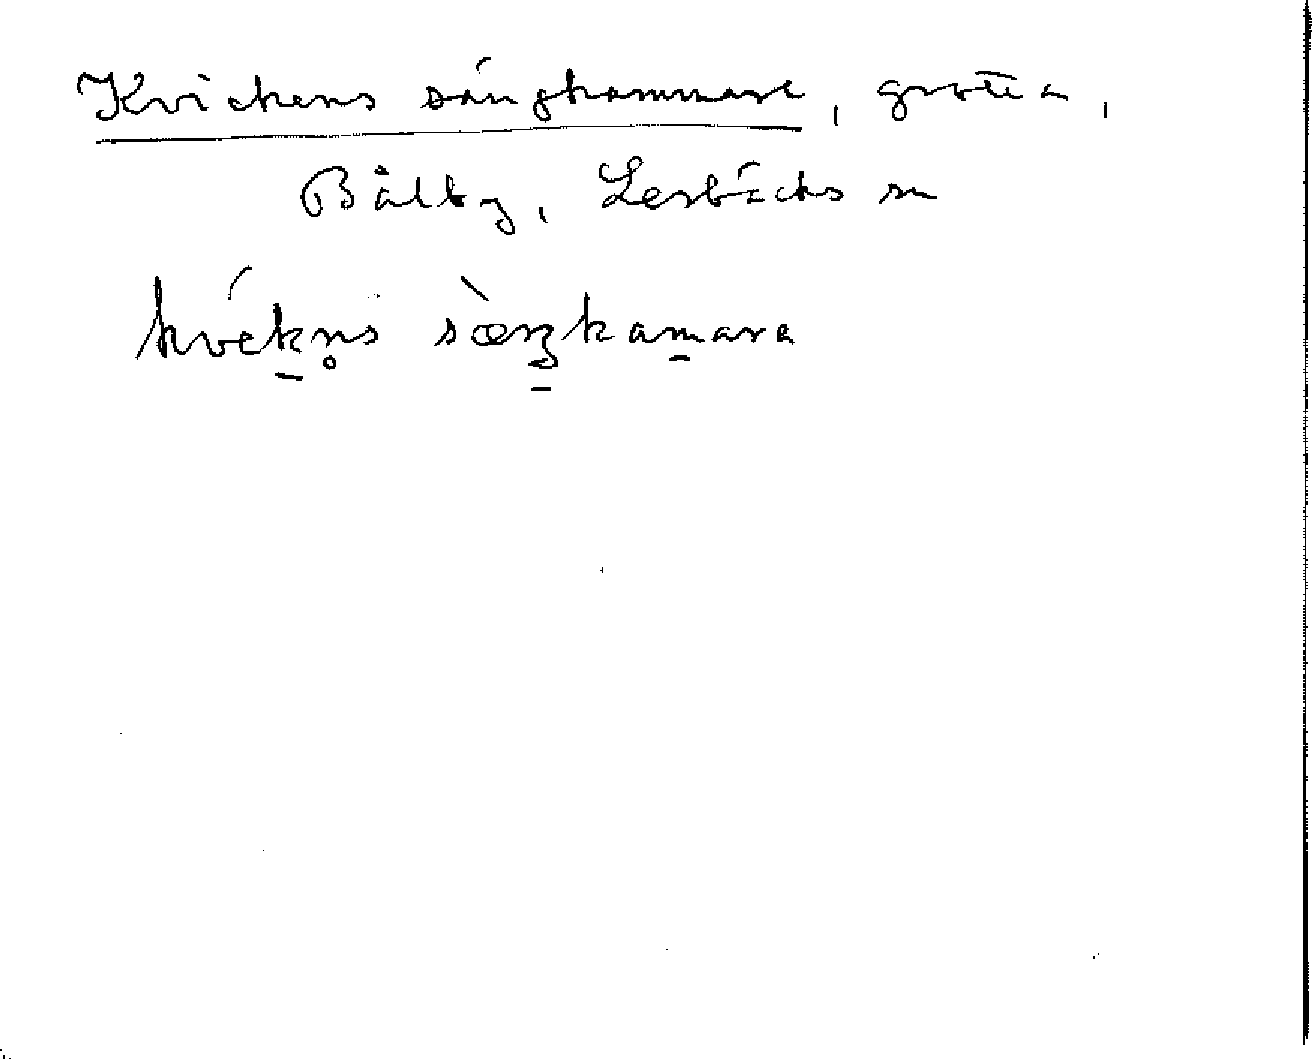 Kvickens sängkammare, grotta,
Bålby, Lerbäcks sn
kvék̠n̥s sæ̀ŋ̠kam̠ara